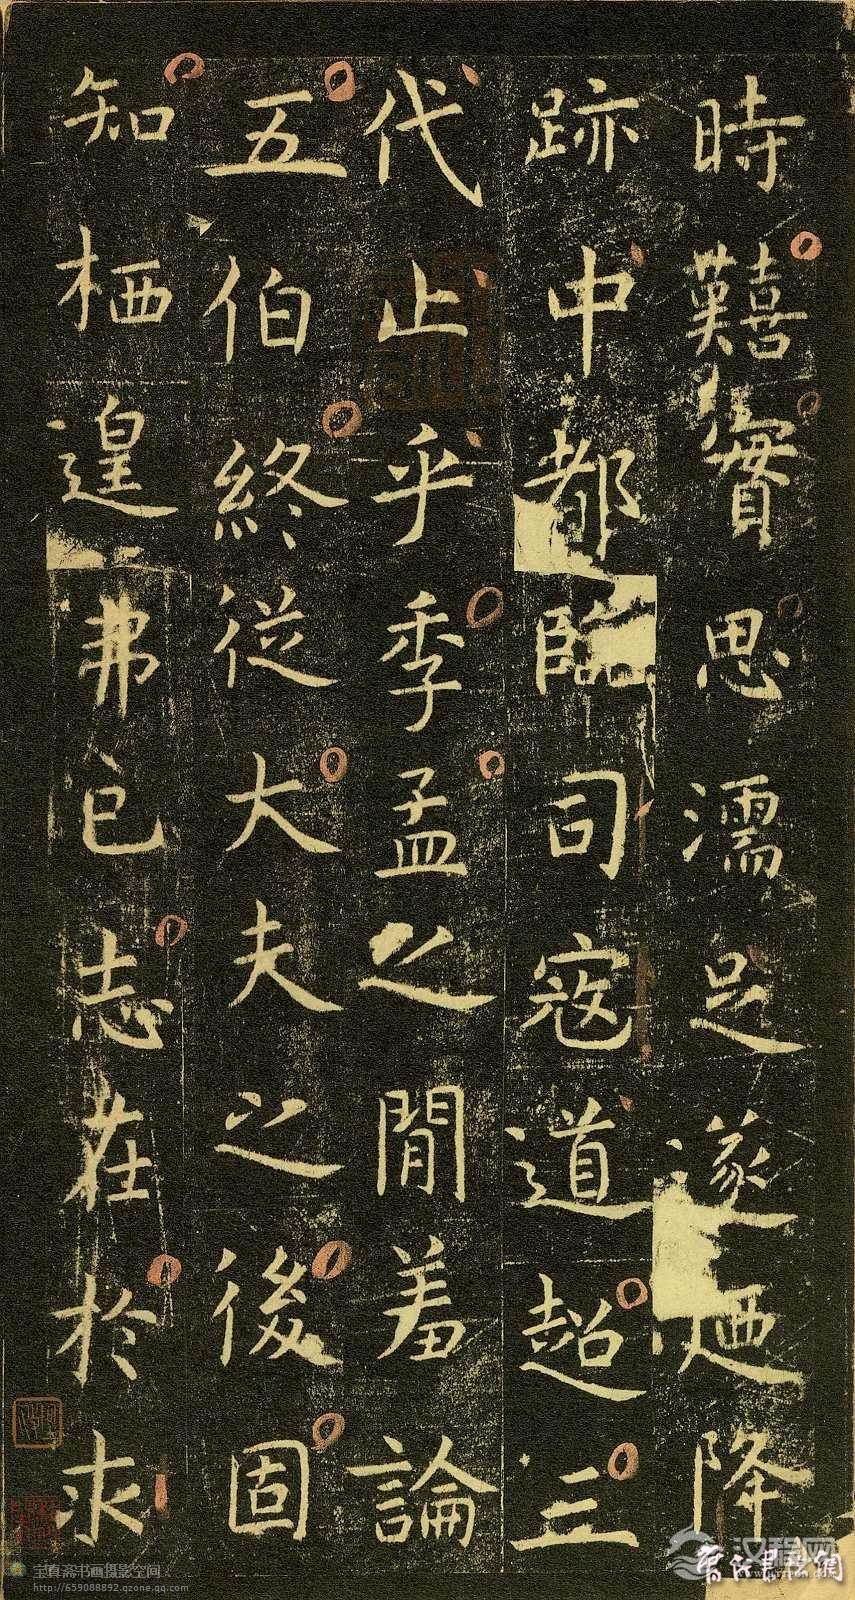 時囏實思濡足遂迺降
跡中都臨司寇道超三
代止乎季孟之閒羞論
五伯終從大夫之後固
知栖遑弗已志在於求
宝真斋书画摄影空间
http://659088892.qzone.qq.com
汉程网
www.httpcn.com